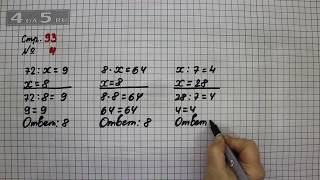 4DA5.RU
Стр. 93
№ 4
72 : x = 9
x = 8
72 : 8 = 9
9 = 9
Ответ: 8
8 · x = 64
x = 8
8 · 8 = 64
64 = 64
Ответ: 8
x : 7 = 4
x = 28
28 : 7 = 4
4 = 4
Ответ